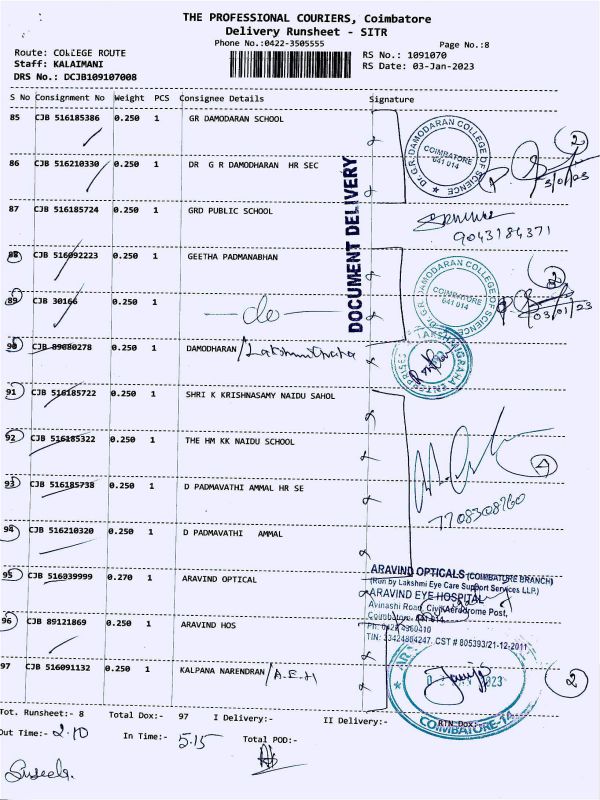 THE PROFESSIONAL COURIERS, Coimbatore
Delivery Runsheet - SITR
Phone No.:0422-3505555
Page No.:8
Route: COLLEGE ROUTE
RS No.: 1091070
Staff: KALAIMANI
RS Date: 03-Jan-2023
DRS No.: DCJB109107008
S No Consignment No Weight PCS Consignee Details Signature
85 CJB 516185386 0.250 1 GR DAMODARAN SCHOOL
86 CJB 516210330 0.250 1 DR G R DAMODHARAN HR SEC
87 CJB 516185724 0.250 1 GRD PUBLIC SCHOOL
88 CJB 516092223 0.250 1 GEETHA PADMANABHAN
89 CJB 30166 0.250 1 —do—
90 CJB 89680278 0.250 1 DAMODHARAN
91 CJB 516185722 0.250 1 SHRI K KRISHNASAMY NAIDU SAHOL
92 CJB 516185322 0.250 1 THE HM KK NAIDU SCHOOL
93 CJB 516185738 0.250 1 D PADMAVATHI AMMAL HR SE
94 CJB 516210320 0.250 1 D PADMAVATHI AMMAL
95 CJB 516039999 0.270 1 ARAVIND OPTICAL
96 CJB 89121869 0.250 1 ARAVIND HOS
97 CJB 516091132 0.250 1 KALPANA NARENDRAN /A.E.H
DOCUMENT DELIVERY
Dr. G.R. DAMODARAN COLLEGE OF SCIENCE
COIMBATORE
641 014
2
3/01/23
9043184371
Dr. G.R. DAMODARAN COLLEGE OF SCIENCE
COIMBATORE
641 014
2
03/01/23
ENTERPRISES
4
7708308760
ARAVIND OPTICALS (COIMBATORE BRANCH)
(Run by Lakshmi Eye Care Support Services LLP.)
ARAVIND EYE HOSPITAL
Avinashi Road, Civil Aerodrome Post,
Coimbatore
Ph: 0422 4360410
TIN: 33424804247. CST # 805393/21-12-2011
2023
COIMBATORE
2
Tot. Runsheet:- 8 Total Dox:- 97 I Delivery:- II Delivery:- RTN Dox:-
Out Time:- 2.10 In Time:- 5.15 Total POD:-